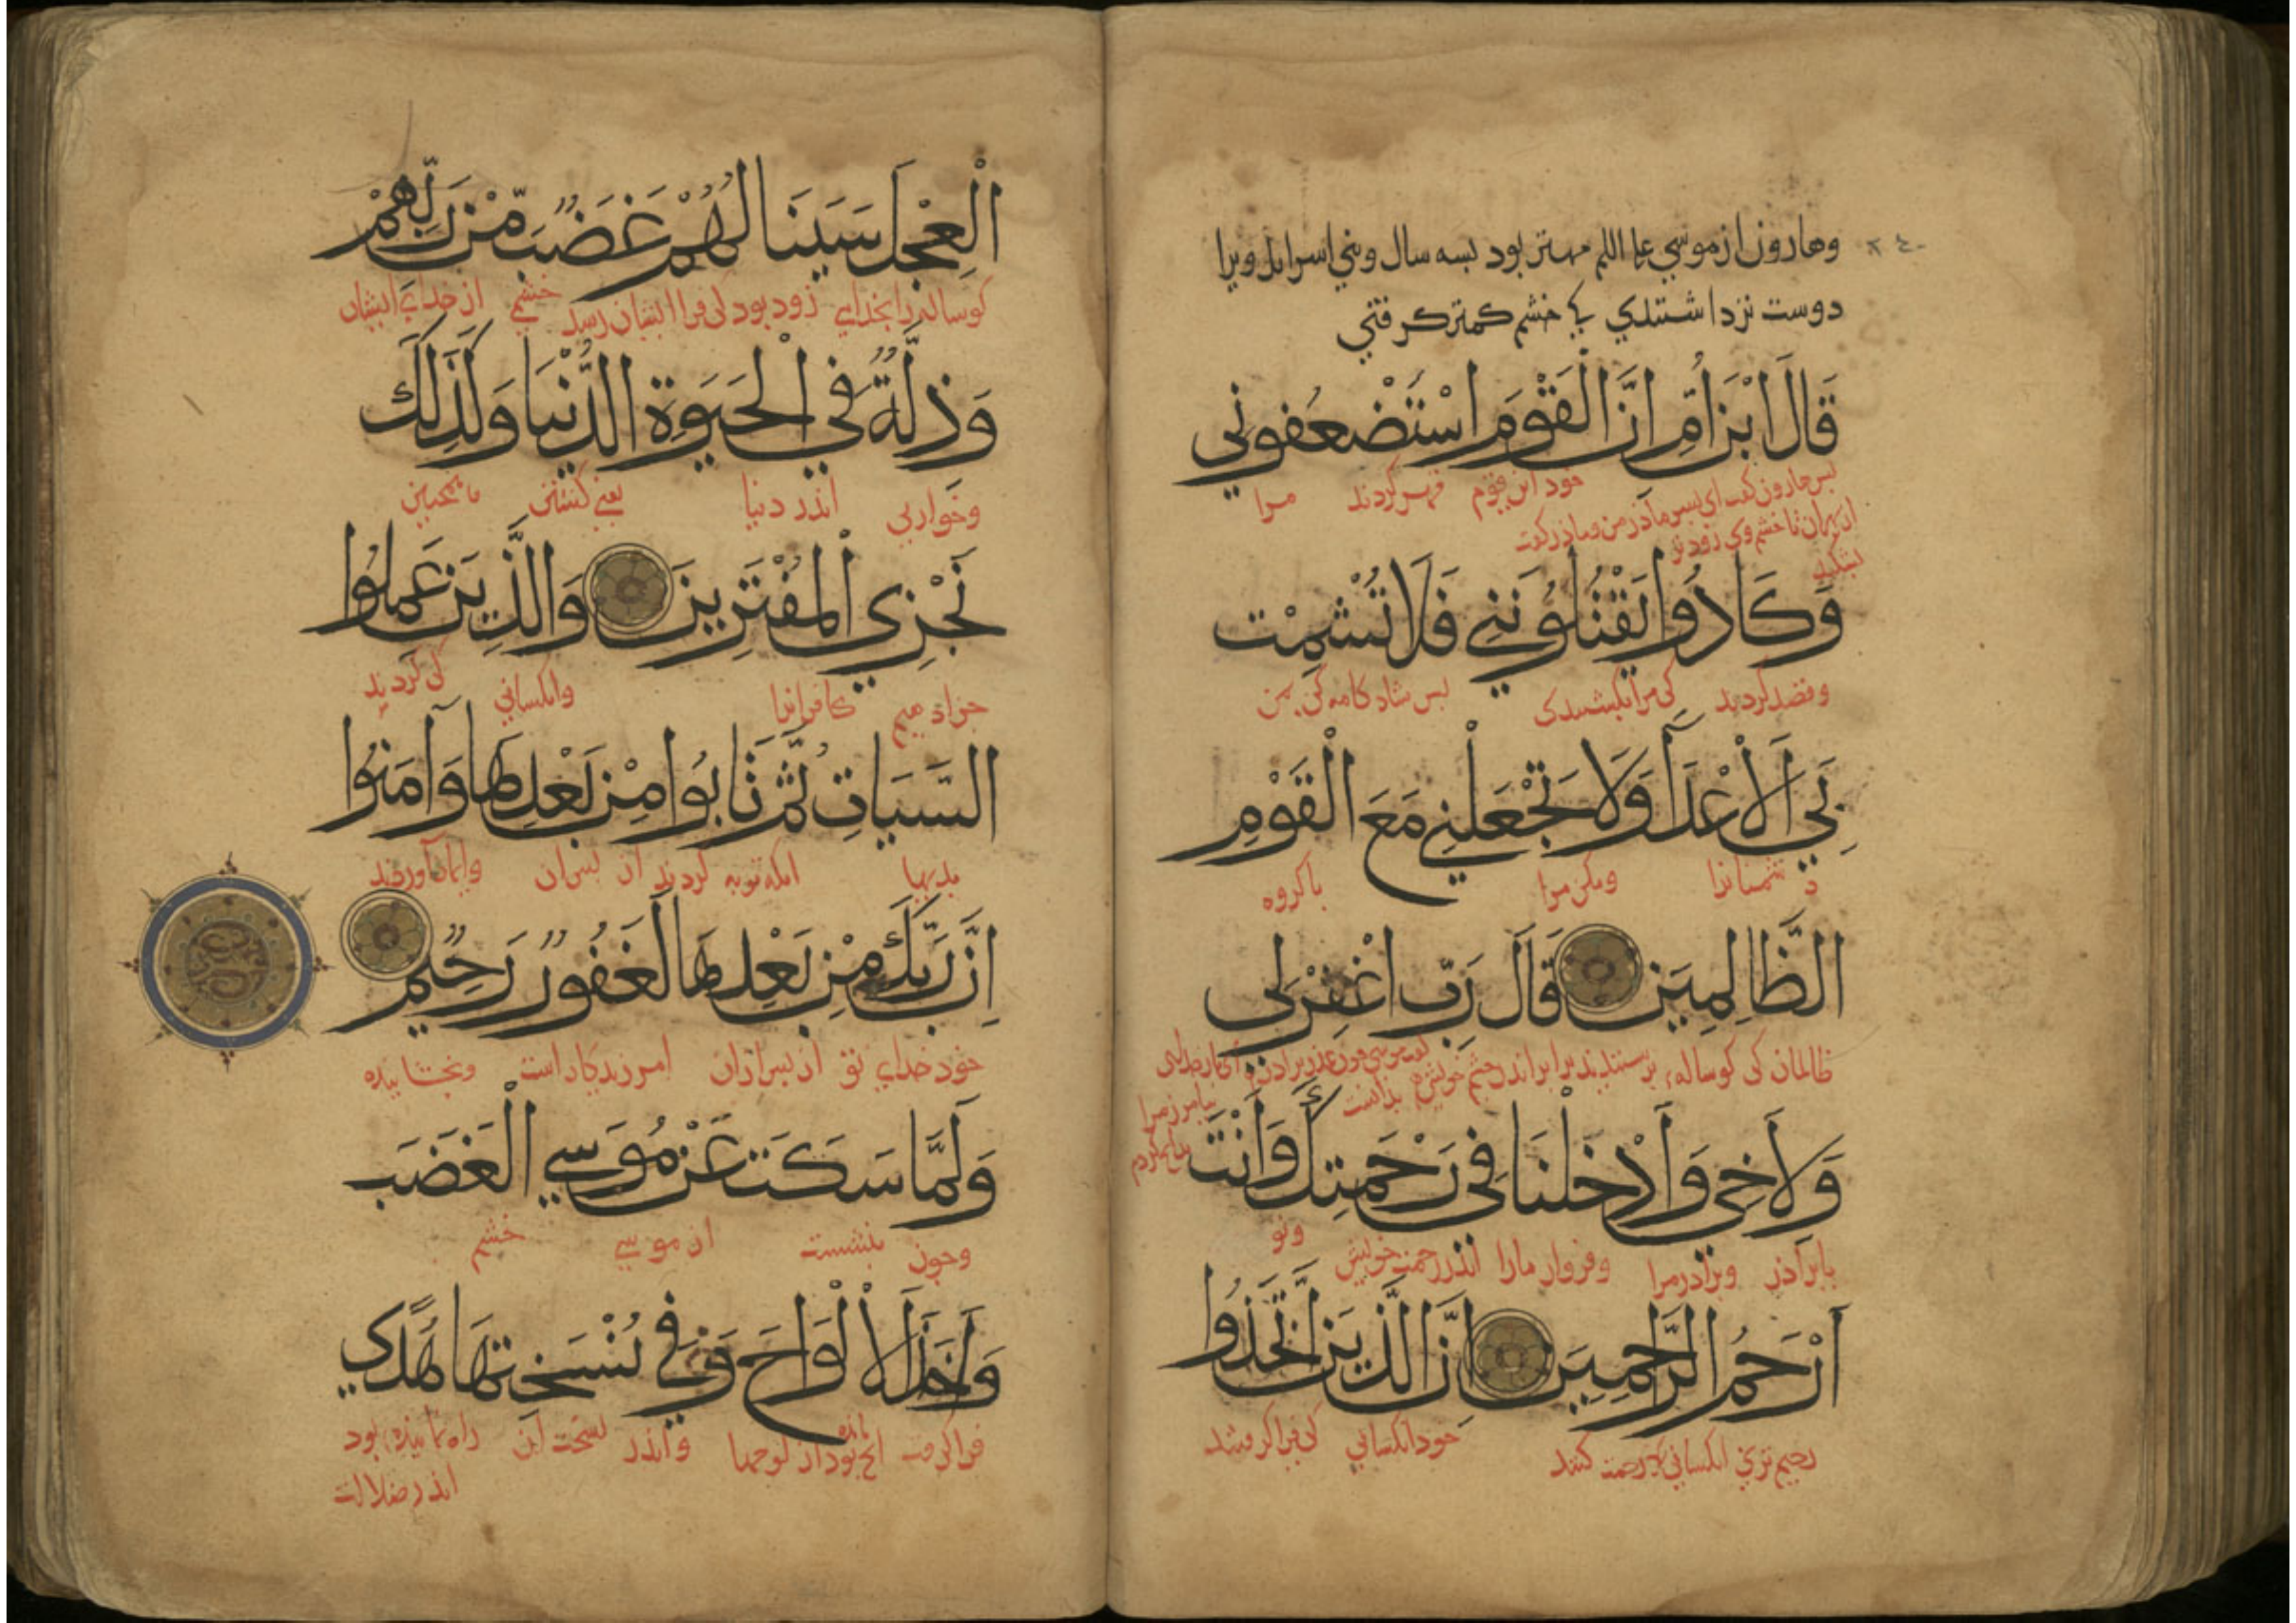 وهارون از موسی علیه اللم مهتر بود بسه سال و بنی اسرایل ویرا
٢٤٠
دوست تر داشتندی کی خشم کمتر کرفتی
قَالَ ابْنَ أُمَّ اِنَّ الْقَوْمَ اسْتَضْعَفُونِي
بس هارون کفت ای بسر ماذر من خود این قوم قهر کردند مرا
وَكَادُوا يَقْتُلُونَنِي فَلَا تُشْمِتْ
وقصد کردند کی مرا بکشتندی بس شاد کامه کن بمن
بِيَ الْأَعْدَآءَ وَلَا تَجْعَلْنِي مَعَ الْقَوْمِ
دشمنانرا ومکن مرا با کروه
الظَّالِمِينَ قَالَ رَبِّ اغْفِرْ لِي
ظالمان کی کوساله برستیدند
بیامرز مرا
وَلِأَخِي وَأَدْخِلْنَا فِي رَحْمَتِكَ وَأَنْتَ
وبراذر مرا وفروار مارا اندر رحمت خویش وتو
أَرْحَمُ الرَّاحِمِينَ اِنَّ الَّذِينَ اتَّخَذُوا
رحیم تری انکسانی کی رحمت کنند خود انکسانی کی فرا کرفتند
الْعِجْلَ سَيَنَالُهُمْ غَضَبٌ مِّنْ رَبِّهِمْ
کوساله را بخدایی زود بود کی فرا ایشان رسد خشمی از خدای ایشان
وَذِلَّةٌ فِي الْحَيَوةِ الدُّنْيَا وَكَذَلِكَ
وخواریی اندر دنیا یعنی کشتن وهمچنین
نَجْزِي الْمُفْتَرِينَ وَالَّذِينَ عَمِلُوا
جزا دهیم کافرانرا وانکسانی کی کردند
السَّيِّاتِ ثُمَّ تَابُوا مِنْ بَعْدِهَا وَآمَنُوا
بدیها انکه توبه کردند از بس ان وایمان آوردند
اِنَّ رَبَّكَ مِنْ بَعْدِهَا لَغَفُورٌ رَحِيمٌ
خود خدای تو از بس ان امرزیدکار است وبخشاینده
وَلَمَّا سَكَتَ عَنْ مُوسَي الْغَضَبُ
وچون بنشست از موسی خشم
أَخَذَ الْأَلْوَاحَ وَفِي نُسْخَتِهَا هُدًي
فرا کرفت انچ مانده بود از لوحها واندر نسخت این راه نماینده بود
اندر ضلالت